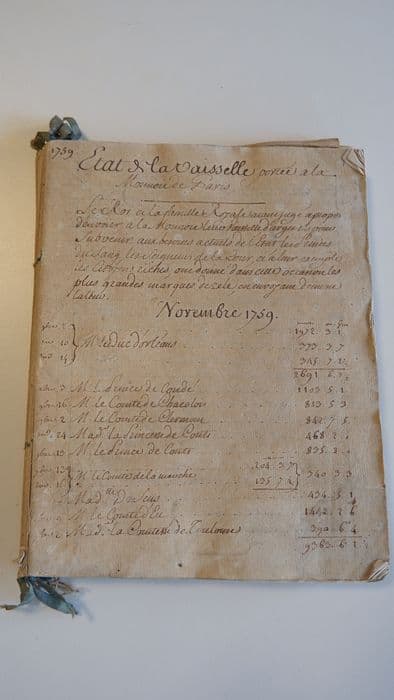 1759.
Etat de la Vaisselle portée a la
Monnoie de Paris
Le Roi et la famille Royale ayant jugé a propos
d'envoyer a la Monnoie leur Vaisselle d'argent pour
Subvenir aux besoins actuels de l'Etat les Princes
du Sang, les Seigneurs de la Cour, et a leur exemple
les Citoyens riches ont donné dans cette occasion les
plus grandes marques de zele en envoyant de meme
la leur.
Novembre 1759.
2 1972. 3. 1
10 M. le duc d'orléans 373. 3. 7
14 345. 7.
2691. 6.
3 M. le Prince de Condé 1103. 5. 1
26 M. le Comte de Charolois 813. 5. 3
2 M. le Comte de Clermont 842. 7. 5
24 Mad. la Princesse de Conti 468. 2.
13 M. le Prince de Conti 835. 2.
13 204. 3. 7
M. le Comte de la marche 340. 3. 3
135. 7.
Mad.lle 434. 5. 1
M. le Comte d'Eu 1442. 2. 6
Mad. la Comtesse de Toulouse 390. 6. 4
9363. 6. 2